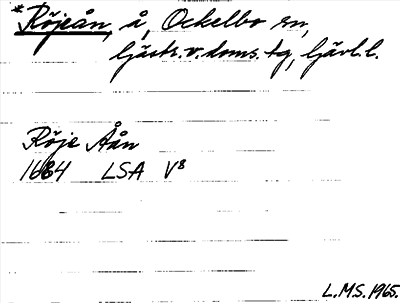 *Röjeån, å, Ockelbo sn,
Gästr.v.doms.tg, Gävl.l.
Röje Åån
1684 LSA V8
L.M.S. 1965.